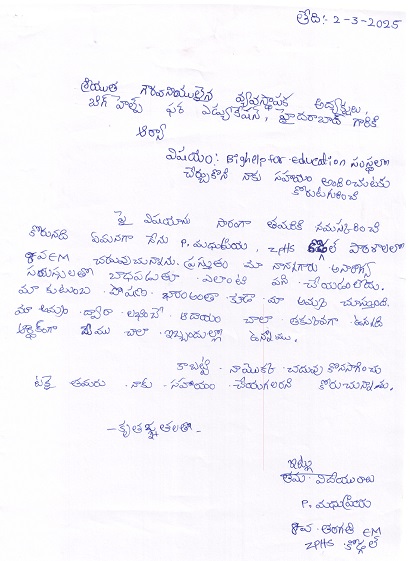 తేది:- 2-3-2025
శ్రీయుత గౌరవనీయులైన వ్యవస్థాపక అధ్యక్షులు,
బిగ్ హెల్ప్ ఫర్ ఎడ్యుకేషన్, హైదరాబాద్ గారికి
ఆర్యా
విషయం:- Bighelp for education సంస్థలో
చేర్చుకొని నాకు సహాయం అందించుటకు
కోరుట గురించి
పై విషయాను సారంగా తమరికి నమస్కరించి
కోరునది ఏమనగా నేను P. మధుప్రియ, ZPHS కొడ్గల్ పాఠశాలలో
EM చదువుచున్నాను. ప్రస్తుతం మా నాన్నగారు అనారోగ్య
సమస్యలతో బాధపడుతూ ఎలాంటి పని చేయడంలేదు.
మా కుటుంబ పోషణ భారం అంతా కూడా మా అమ్మ చూస్తుంది.
మా అమ్మ ద్వారా లభించే ఆదాయం చాలా తక్కువగా ఉన్నది
ఆర్థికంగా మేము చాలా ఇబ్బందుల్లో
ఉన్నాము.
కాబట్టి నాయొక్క చదువు కొనసాగించు
టకై తమరు నాకు సహాయం చేయగలరని కోరుచున్నాను.
- కృతజ్ఞతలతో -
ఇట్లు
తమ విదేయురాలు
P. మధుప్రియ
తరగతి EM
ZPHS కొడ్గల్